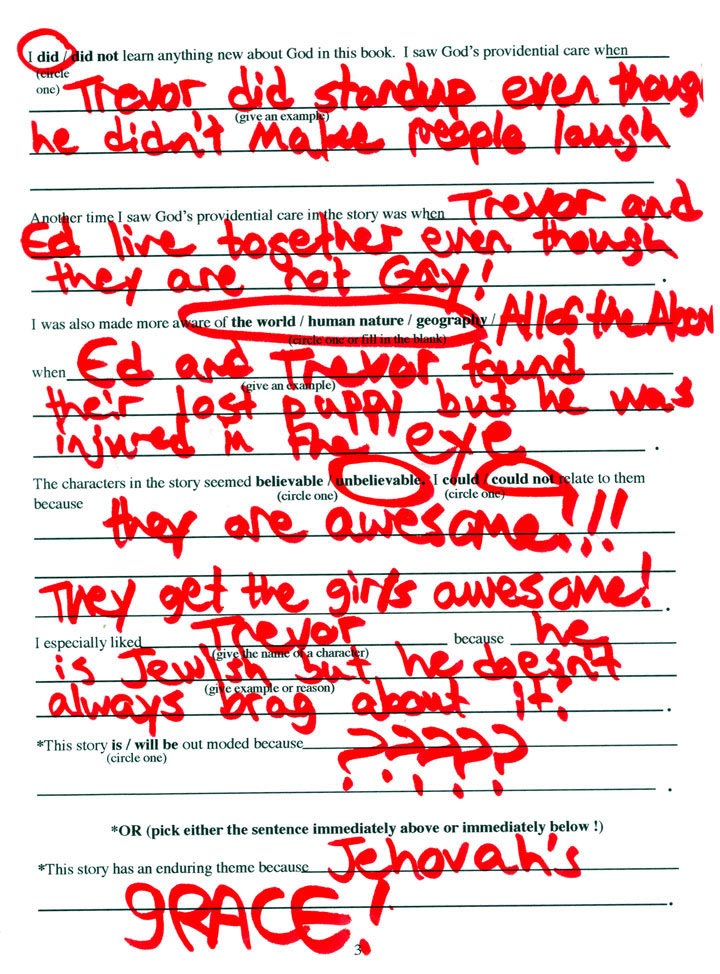 I did / did not learn anything new about God in this book. I saw God's providential care when
(circle
one) Trevor did standup even thoug
(give an example)
he didn't make people laugh
Another time I saw God's providential care in the story was when Trevor and
Ed live together even though
they are not Gay! .
I was also made more aware of the world / human nature / geography / All of the Abov
(circle one or fill in the blank)
when Ed and Trevor found
(give an example)
their lost puppy but he was
injured in the eye .
The characters in the story seemed believable / unbelievable. I could / could not relate to them
(circle one) (circle one)
because they are awesome!!!
They get the girls awesome! .
I especially liked Trevor because he
(give the name of a character)
is Jewish but he doesn't
(give example or reason)
always brag about it. .
*This story is / will be out moded because ?????
(circle one)
.
*OR (pick either the sentence immediately above or immediately below !)
*This story has an enduring theme because Jehovah's
GRACE! .
3